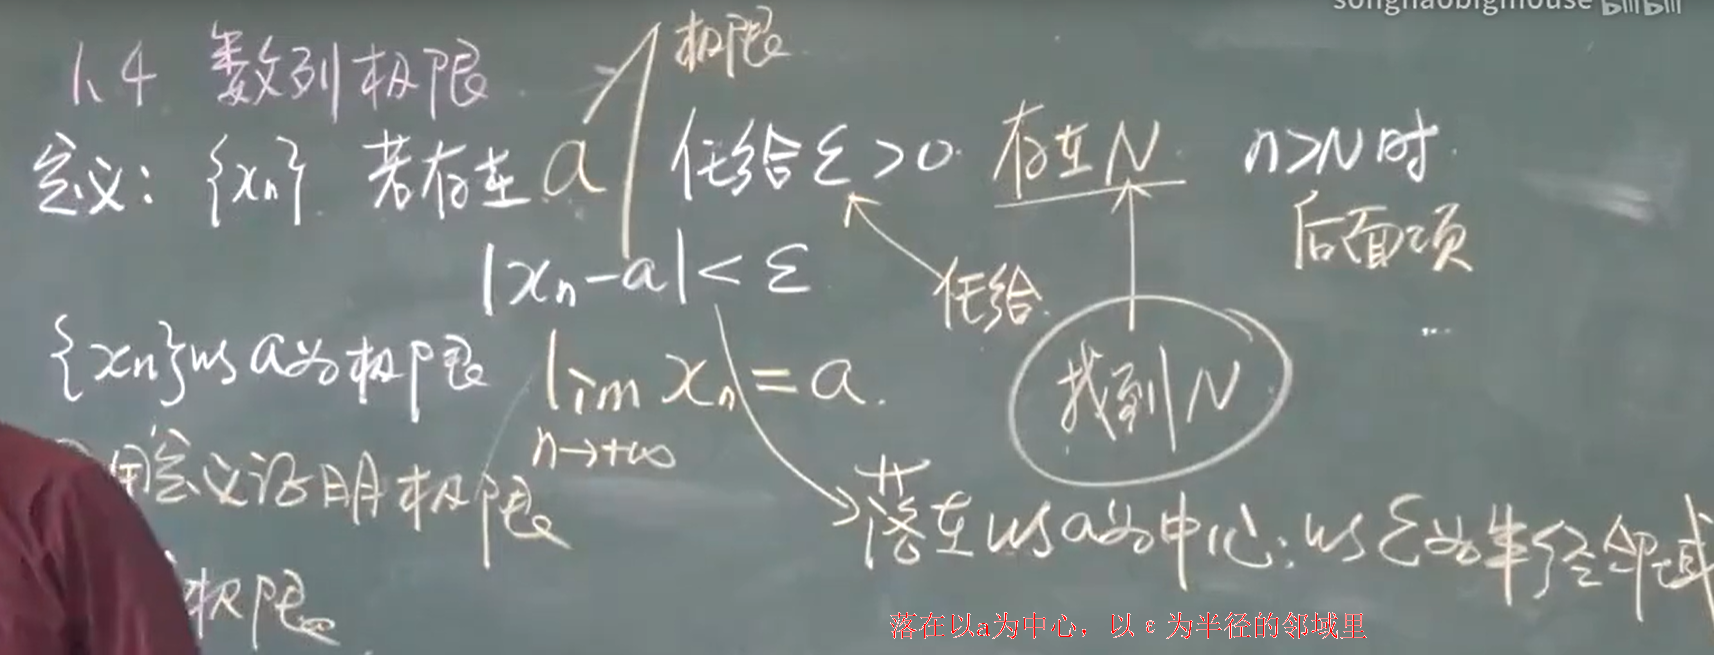 songhaobigmouse bilibili
1.4 数列极限
极限
定义: {xₙ} 若存在 a 任给 ε>0. 存在N. n>N时.
后面项
|xₙ-a|<ε
任给.
{xₙ}以a为极限
lim xₙ=a.
n→+∞
找到N
用定义证明极限
落在以a为中心;以ε为半径邻域
极限
落在以a为中心，以ε为半径的邻域里